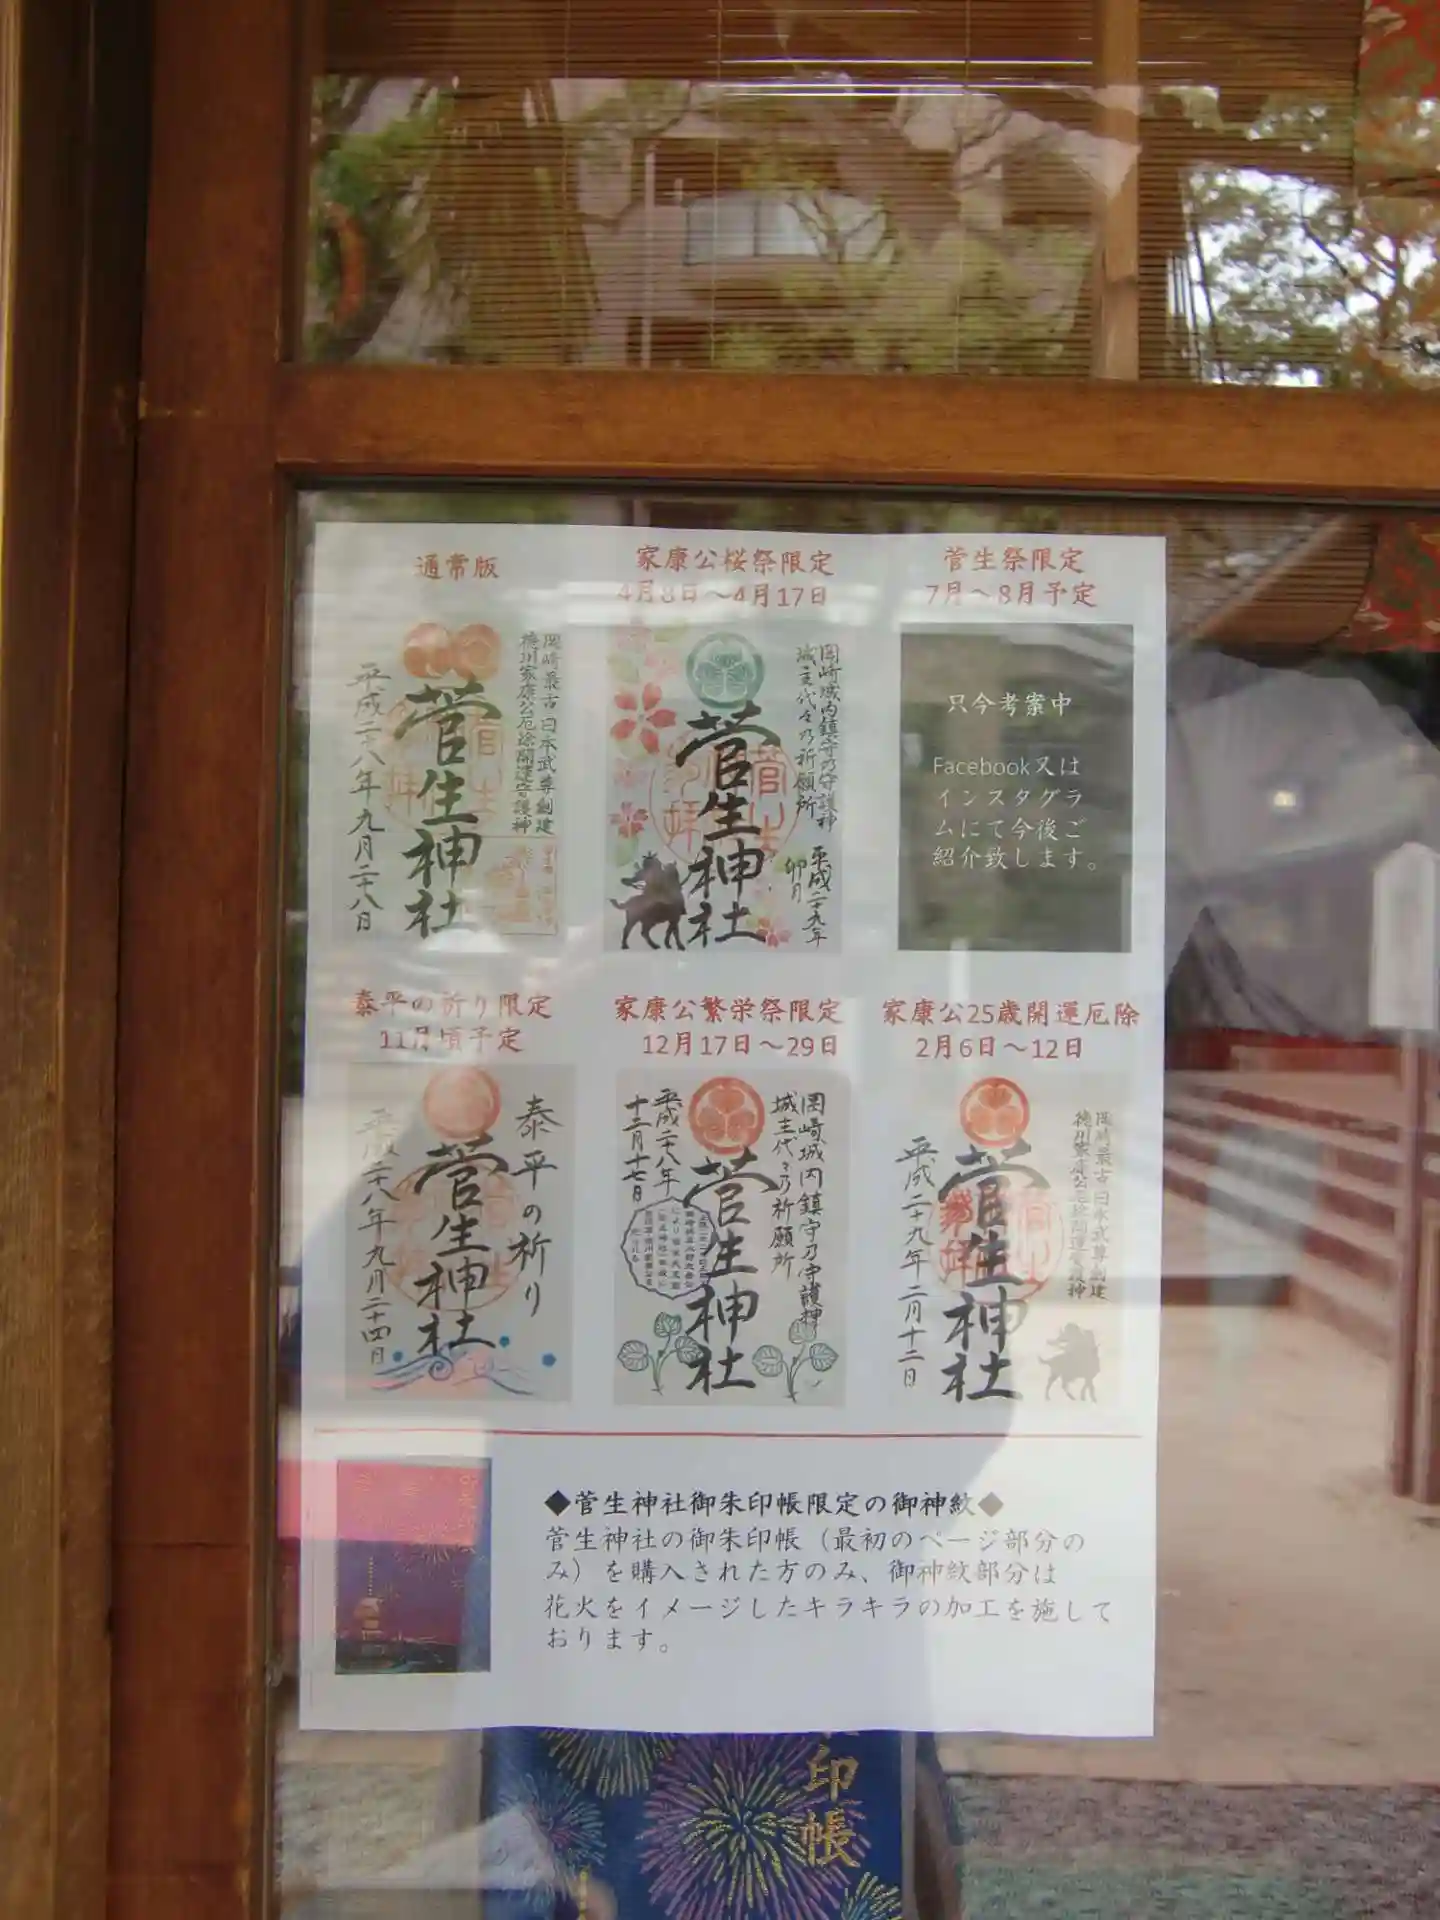 通常版
岡崎最古 日本武尊創建
徳川家康公厄除開運守護神
菅生神社
平成二十八年九月二十八日
家康公桜祭限定
4月8日～4月17日
岡崎城内鎮守乃守護神
城主代々乃祈願所
平成二十九年
卯月
菅生神社
菅生祭限定
7月～8月予定
只今考案中
Facebook又は
インスタグラ
ムにて今後ご
紹介致します。
泰平の祈り限定
11月頃予定
泰平の祈り
菅生神社
平成二十八年九月二十四日
家康公繁栄祭限定
12月17日～29日
岡崎城内鎮守乃守護神
城主代々乃祈願所
菅生神社
平成二十八年
十二月十七日
家康公25歳開運厄除
2月6日～12日
岡崎最古日本武尊創建
徳川家康公厄除開運守護神
菅生神社
平成二十九年二月十二日
◆菅生神社御朱印帳限定の御神紋◆
菅生神社の御朱印帳（最初のページ部分の
み）を購入された方のみ、御神紋部分は
花火をイメージしたキラキラの加工を施して
おります。
印帳